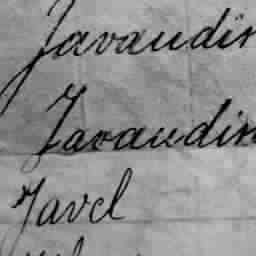 Javaudin
Javaudin
Javel